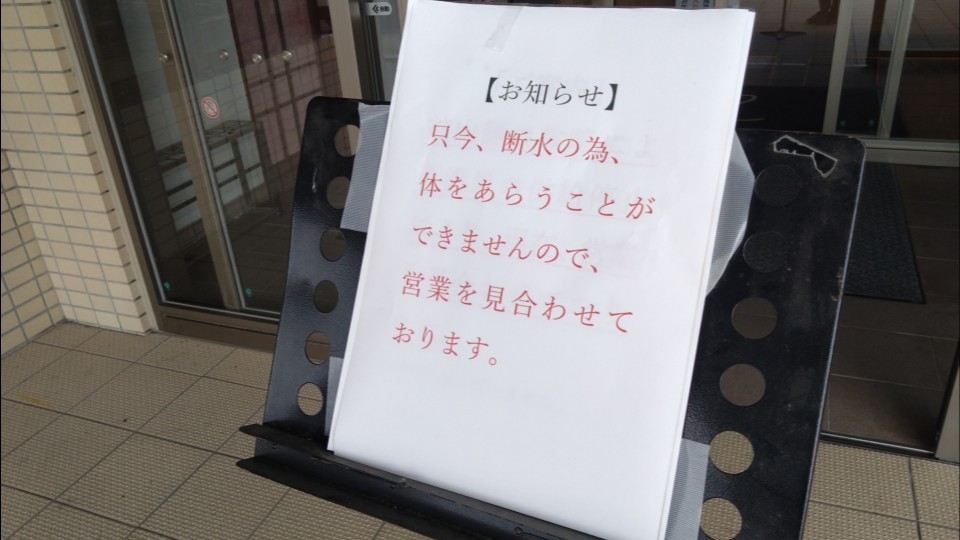 【お知らせ】
只今、断水の為、
体をあらうことが
できませんので、
営業を見合わせて
おります。